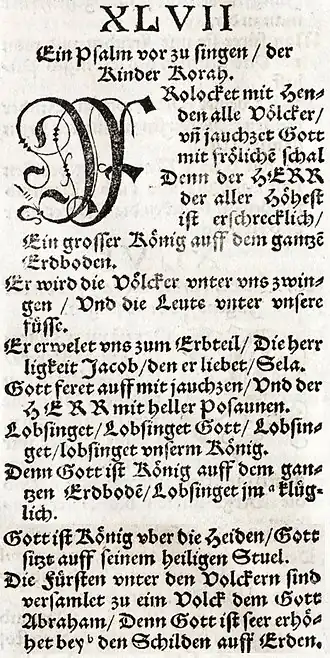 XLVII
Ein Psalm vor zu singen / der
Kinder Korah.
FRolocket mit Hen-
den alle Völcker /
vñ jauchzet Gott
mit frölichē schal
Denn der HERR
der aller Höhest
ist erschrecklich /
Ein grosser König auff dem gantzē
Erdboden.
Er wird die Völcker vnter vns zwin-
gen / Vnd die Leute vnter vnsere
füsse.
Er erwelet vns zum Erbteil / Die herr
ligkeit Jacob / den er liebet / Sela.
Gott feret auff mit jauchzen / Vnd der
HERR mit heller Posaunen.
Lobsinget / Lobsinget Gott / Lobsin-
get / lobsinget vnserm König.
Denn Gott ist König auff dem gan-
tzen Erdbodē / Lobsinget jm a klüg-
lich.
Gott ist König vber die Heiden / Gott
sitzt auff seinem heiligen Stuel.
Die Fürsten vnter den Volckern sind
versamlet zu eim Volck dem Gott
Abraham / Denn Gott ist seer erhö-
het bey b den Schilden auff Erden.